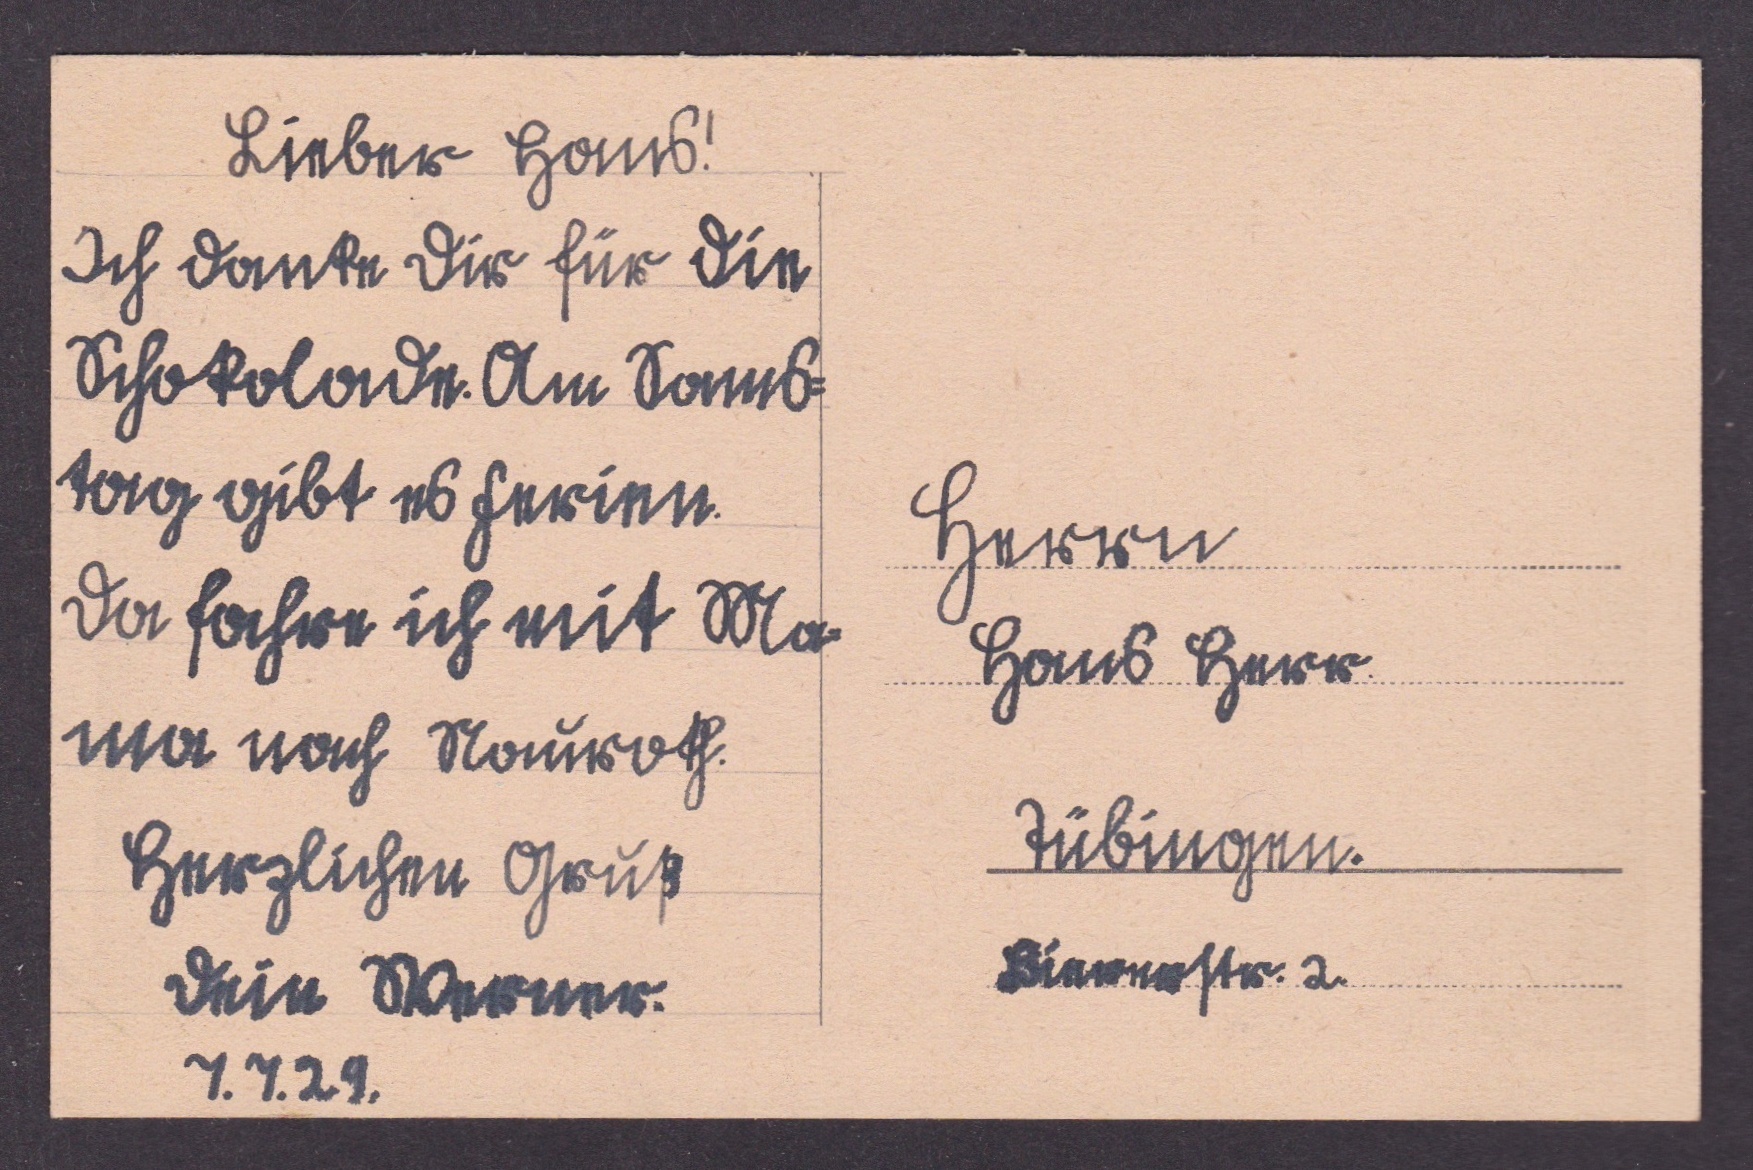 Lieber Hans!
Ich danke Dir für die
Schokolade. Am Sams=
tag gibt es Ferien.
Da fahre ich mit Ma=
ma nach Nauroth.
Herzlichen Gruß
Dein Werner.
7.7.29.
Herrn
Hans Herr.
Tübingen.
2.